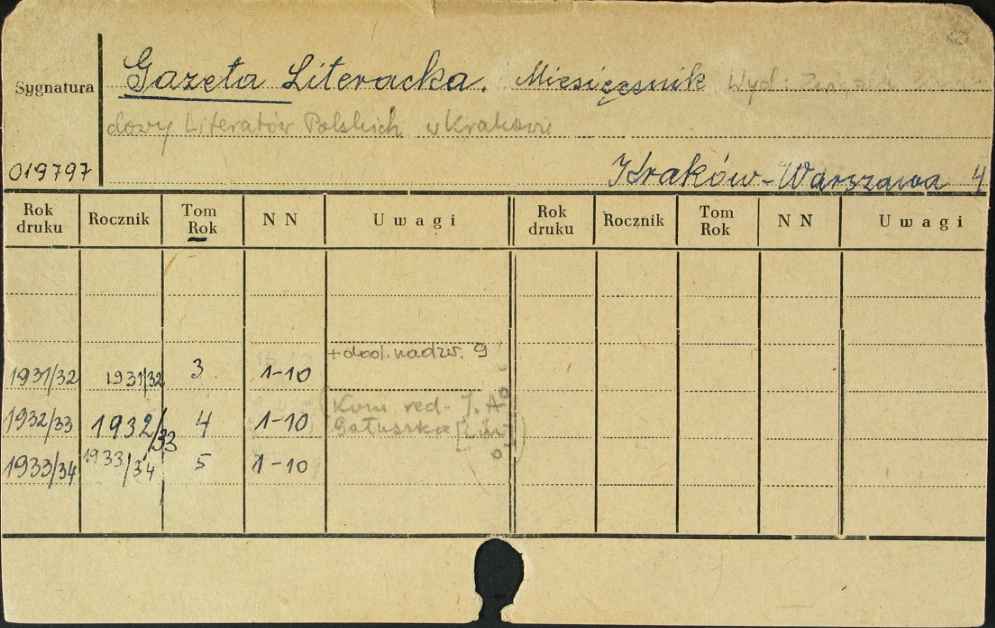 Sygnatura
Gazeta Literacka. Miesięcznik Wyd: Związek Zawo-
dowy Literatów Polskich w Krakowie
019797
Kraków-Warszawa 4
Rok druku Rocznik Tom Rok N N Uwagi Rok druku Rocznik Tom Rok N N Uwagi
+dod. nadzw. 9
1931/32 1931/32 3 1-10
Kom red- J. A
1932/33 1932/33 4 1-10 Gałuszka
1933/34 1933/34 5 1-10